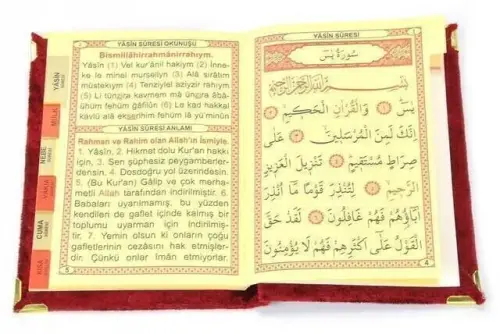 YÂSİN SÛRESİ OKUNUŞU
Bismillâhirrahmânirrahıym.
Yâsîn (1) Vel kur'ânil hakiym (2) İnne-
ke le minel murseliyn (3) Alâ sırâtım
müstekıym (4) Tenziylel aziyzir rahıym
(5) Li tünzira kavmem mâ ünzira âbâ-
ühüm fehüm ğâfilûn (6) Le kad hakkal
kavlü alâ ekserihim fehüm lâ yü'minûn
YÂSİN SÛRESİ ANLAMI
Rahman ve Rahim olan Allah'ın İsmiyle.
1. Yâsîn, 2. Hikmet dolu Kur'an hakkı
için, 3. Sen şüphesiz peygamberler-
densin. 4. Dosdoğru yol üzerindesin.
5. (Bu Kur'an) Galip ve çok merha-
metli Allah tarafından indirilmiştir. 6.
Babaları uyarılmamış, bu yüzden
kendileri de gaflet içinde kalmış bir
toplumu uyarman için indirilmiş-
tir. 7. Yemin olsun ki onların çoğu
gafletlerinin cezasını hak etmişler-
dir. Çünkü onlar İman etmiyorlar.
5
YÂSİN
NEBE
CUMA
YÂSİN SÛRESİ
سُورَةُ يٰسٓ
بِسْمِ اللّٰهِ الرَّحْمٰنِ الرَّحِيمِ
يٰسٓ ﴿١﴾ وَالْقُرْاٰنِ الْحَكِيمِ ﴿٢﴾
اِنَّكَ لَمِنَ الْمُرْسَلِينَ ﴿٣﴾ عَلٰى
صِرَاطٍ مُسْتَقِيمٍ ﴿٤﴾ تَنْزِيلَ الْعَزِيزِ
الرَّحِيمِ ﴿٥﴾ لِتُنْذِرَ قَوْمًا مَٓا اُنْذِرَ
اٰبَٓاؤُهُمْ فَهُمْ غَافِلُونَ ﴿٦﴾ لَقَدْ حَقَّ
الْقَوْلُ عَلٰٓى اَكْثَرِهِمْ فَهُمْ لَا يُؤْمِنُونَ
4